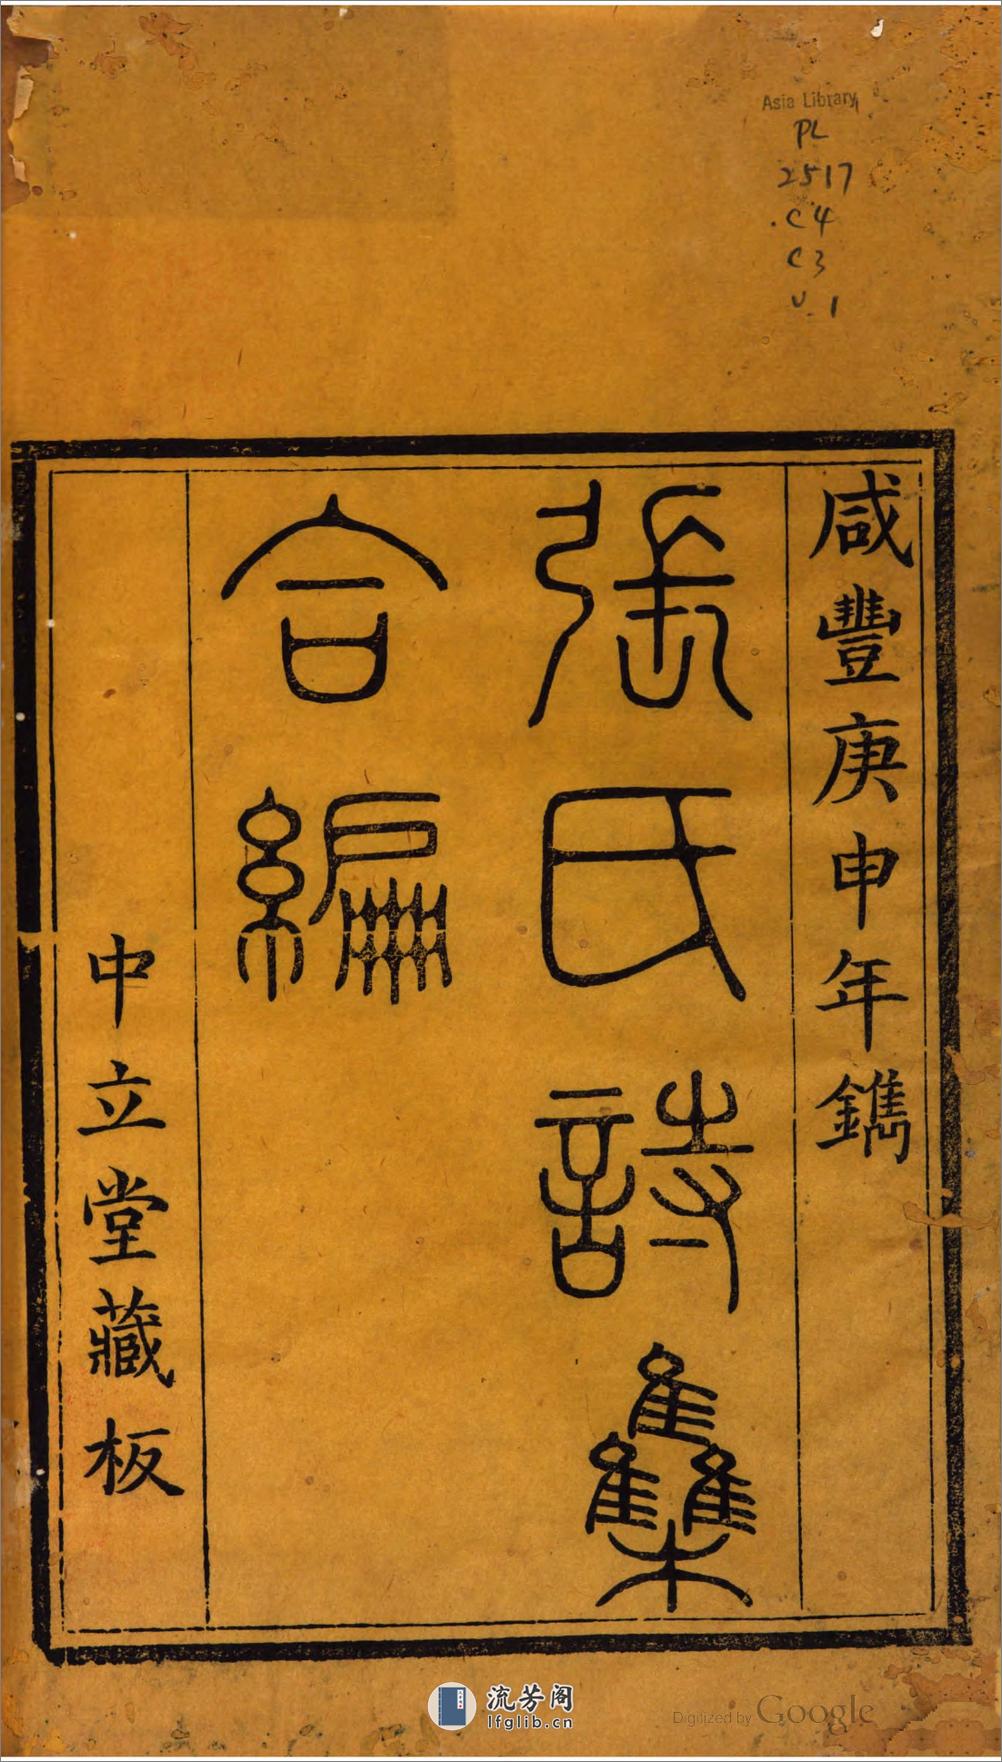 Asia Library
PL
2517
.C4
C3
v.1
咸豐庚申年鐫
張氏詩集
合編
中立堂藏板
流芳阁
lfglib.cn
Digitized by Google